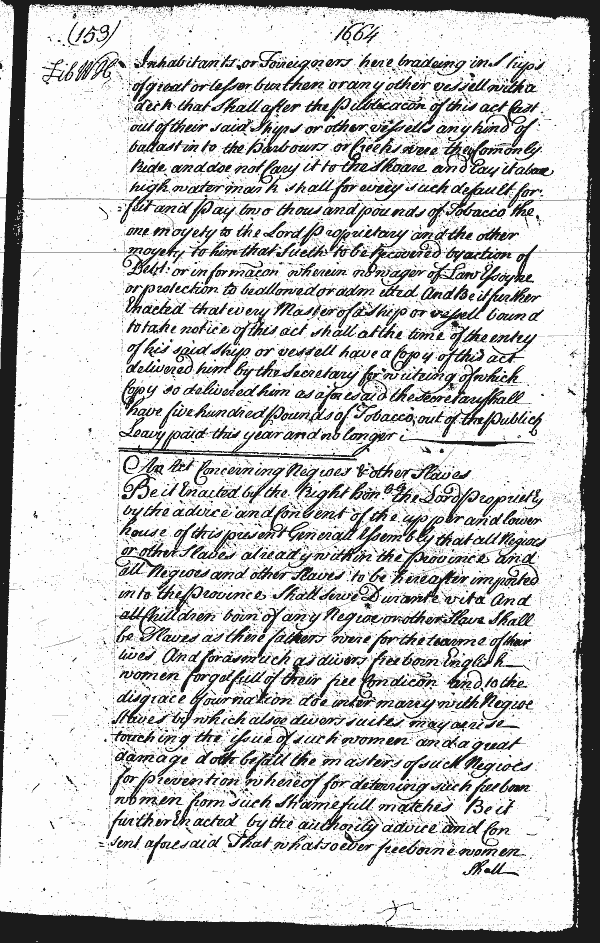 (153)
1664
Lib WH
Inhabitants or Foreigners here tradeing in Ships
of great or lesser burthen or any other vessell with a
deck that shall after the Publicacon of this act Cast
out of their said Ships or other vessells any kind of
ballast in to the Harbours or Creeks were they Comonly
Ride and doe not Cary it to the Shoare and Lay it above
high water mark shall for every such default for
feit and Pay two thousand pounds of Tobacco the
one moyety to the Lord Proprietary and the other
moyety to him that Sueth to be Recovered by action of
Debt or informacon wherein no wager of Law Essoyne
or protection to be allowed or admitted And Be it further
Enacted that every Master of a ship or vessell bound
to take notice of this act shall at the time of the entry
of his said ship or vessell have a Copy of this act
delivered him by the Secretary for writeing of which
Copy so delivered him as aforesaid the Secretary shall
have five hundred Pounds of Tobacco out of the Publick
Leavy paid this year and no longer
An Act Concerning Negroes & other Slaves
Be it Enacted by the Right Honble the Lord Proprietry
by the advice and Consent of the upper and lower
house of this present Generall Assembly that all Negroes
or other Slaves already within the Province and
all Negroes and other Slaves to be hereafter imported
into the Province Shall Serve Durante vita And
all Children born of any Negroe or other Slave Shall
be Slaves as there fathers were for the tearme of their
lives And forasmuch as divers freeborn English
women forgetfull of their free Condicon and to the
disgrace of our nation doe inter marry with Negroe
Slaves by which alsoe divers suites may arise
touching the issue of such women and a great
damage doth befall the masters of such Negroes
for prevention whereof for deterring such freeborn
women from such Shamefull matches Be it
further Enacted by the authority advice and Con
sent aforesaid That whatsoever freeborne women
Shall